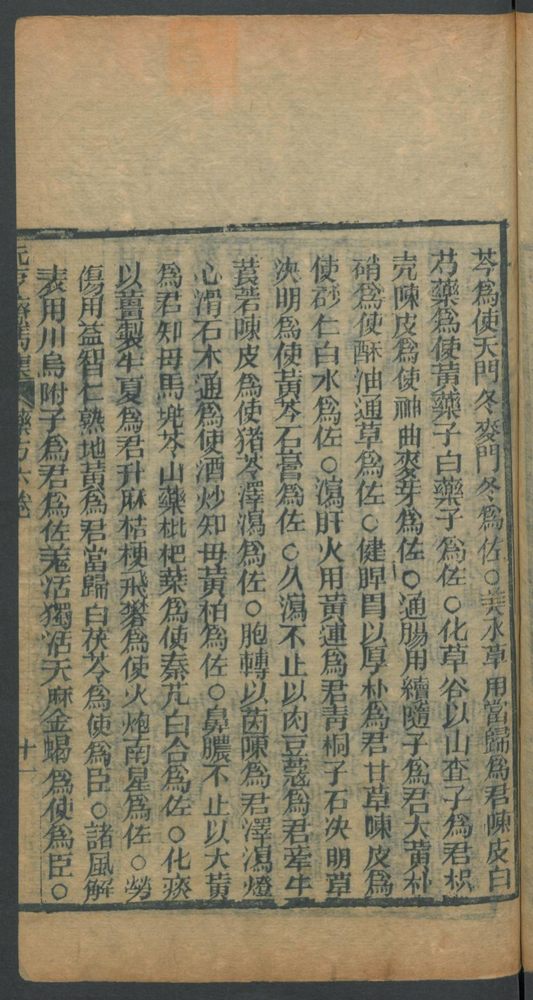 芩爲使天門冬麥門冬爲佐○美水草用當歸爲君陳皮白
芍藥爲使黃藥子白藥子爲佐○化草谷以山查子爲君枳
壳陳皮爲使神曲麥芽爲佐○通腸用續隨子爲君大黃朴
硝爲使酥油通草爲佐○健脾胃以厚朴爲君甘草陳皮爲
使砂仁白水爲佐○瀉肝火用黃連爲君青桐子石决明草
決明爲使黃芩石膏爲佐○久瀉不止以肉豆蔻爲君牽牛
莨菪陳皮爲使猪苓澤瀉爲佐○胞轉以茵陳爲君澤瀉燈
心滑石木通爲使酒炒知毋黃柏爲佐○鼻膿不止以大黃
爲君知毋馬兠苓山藥枇杷葉爲使秦艽白合爲佐○化痰
以薑製半夏爲君升麻桔梗飛礬爲使火炮南星爲佐○勞
傷用益智仁熟地黃爲君當歸白茯苓爲使爲臣○諸風解
表用川烏附子爲君爲佐羗活獨活天麻全蝎爲使爲臣○
元亨療馬集 藥方六卷 十一